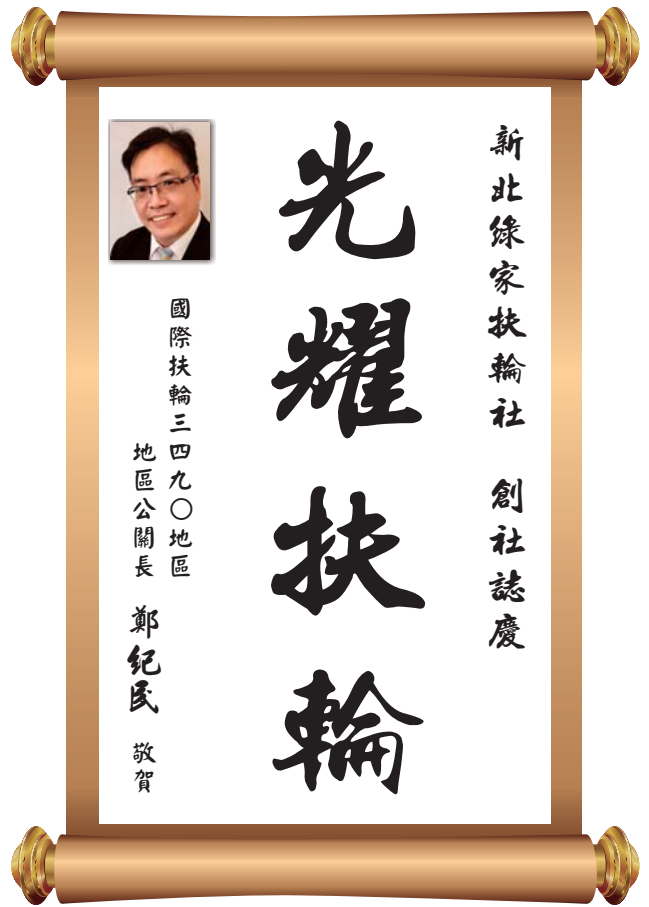 新北綠家扶輪社 創社誌慶
光耀扶輪
國際扶輪三四九〇地區
地區公關長 鄭紀民 敬賀